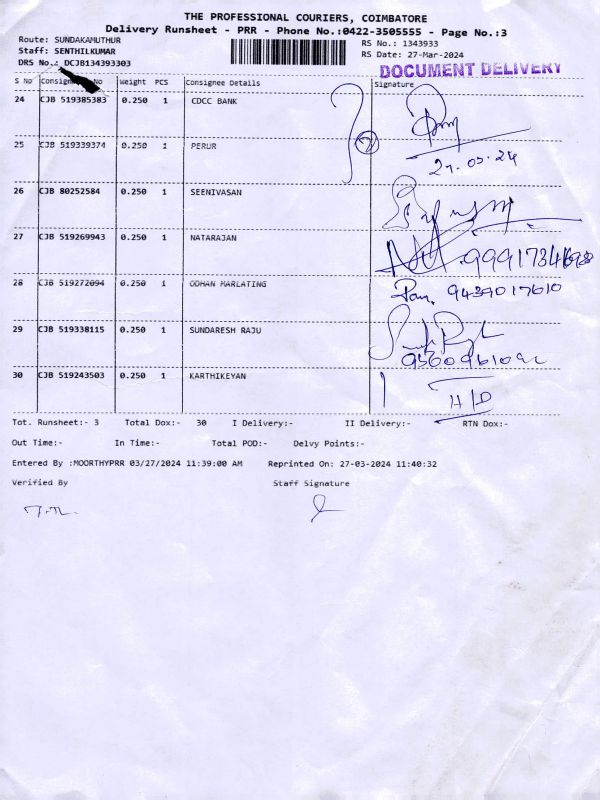 THE PROFESSIONAL COURIERS, COIMBATORE
Delivery Runsheet - PRR - Phone No.:0422-3505555 - Page No.:3
Route: SUNDAKAMUTHUR
RS No.: 1343933
Staff: SENTHILKUMAR
RS Date: 27-Mar-2024
DRS No.: DCJB134393303
DOCUMENT DELIVERY
S No Consign No Weight PCS Consignee Details Signature
24 CJB 519385383 0.250 1 CDCC BANK
25 CJB 519339374 0.250 1 PERUR
2
27.03.24
26 CJB 80252584 0.250 1 SEENIVASAN
27 CJB 519269943 0.250 1 NATARAJAN
28 CJB 519272094 0.250 1 ODHAN MARLATING
9439017610
29 CJB 519338115 0.250 1 SUNDARESH RAJU
30 CJB 519243503 0.250 1 KARTHIKEYAN
H/D
Tot. Runsheet:- 3 Total Dox:- 30 I Delivery:- II Delivery:- RTN Dox:-
Out Time:- In Time:- Total POD:- Delvy Points:-
Entered By :MOORTHYPRR 03/27/2024 11:39:00 AM Reprinted On: 27-03-2024 11:40:32
Verified By Staff Signature